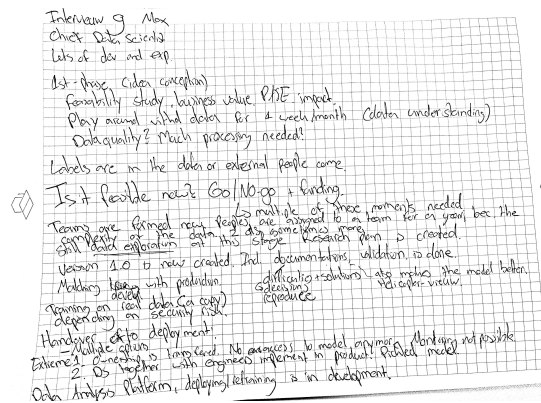 Interview 9 Max
Chief Data Scientist
Lots of dev and exp.
1st-phase (idea conception)
feasability study, business value, impact
Play around with data for 1 week/month (data understanding)
Data quality? Much processing needed?
Labels are in the data or external people come.
Is it feasible now? Go/No-go + funding
↳ multiple of these moments needed
Teams are formed now, People are assigned to a team for a year, bec. the
complexity of the data, sometimes more.
Still data exploration at this stage Research plan is created.
Version 1.0 is now created. Incl. documentations, validation, is done
Matching with production difficulties + solutions also makes the model better.
devel. & decisions Helicopter-view.
Training on real data (a copy) reproduce
depending on security risk.
Handover to deployment:
- Multiple
Extreme: 1 ownership is transfered. No access to model anymore. Monitoring not possible
2. DS together with engineers implement in product. model.
Data Analysis Platform, deploying/retraining is in development.